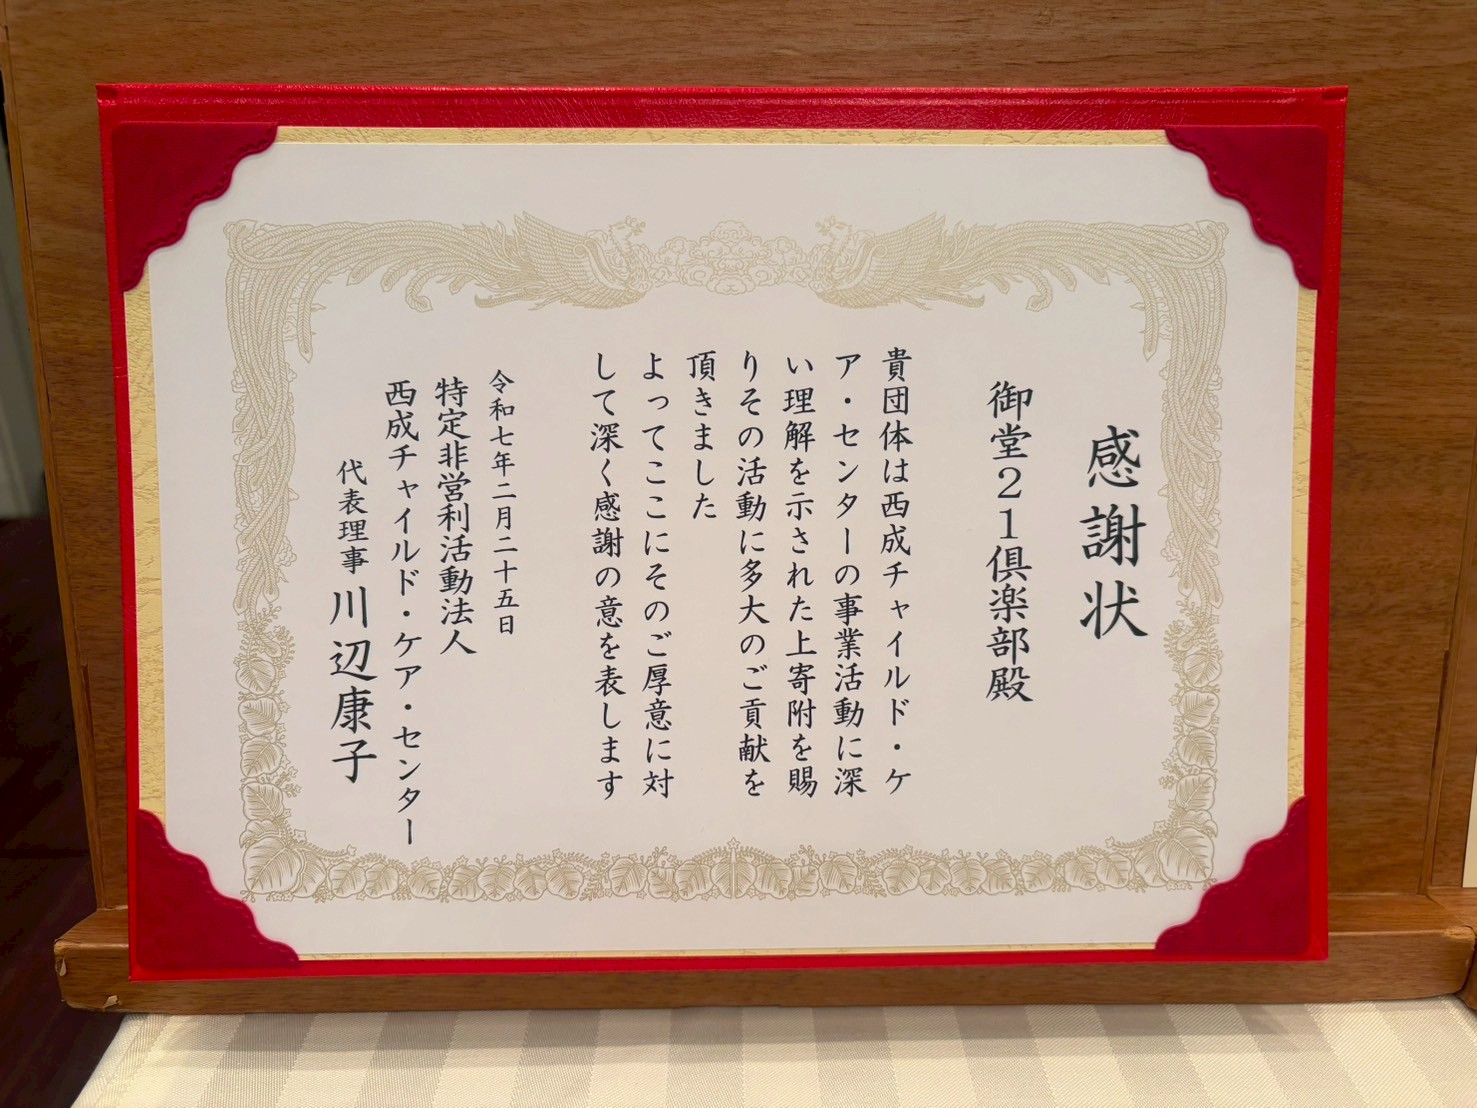 感謝状
御堂２１倶楽部殿
貴団体は西成チャイルド・ケ
ア・センターの事業活動に深
い理解を示された上寄附を賜
りその活動に多大のご貢献を
頂きました
よってここにそのご厚意に対
して深く感謝の意を表します
令和七年二月二十五日
特定非営利活動法人
西成チャイルド・ケア・センター
代表理事 川辺康子